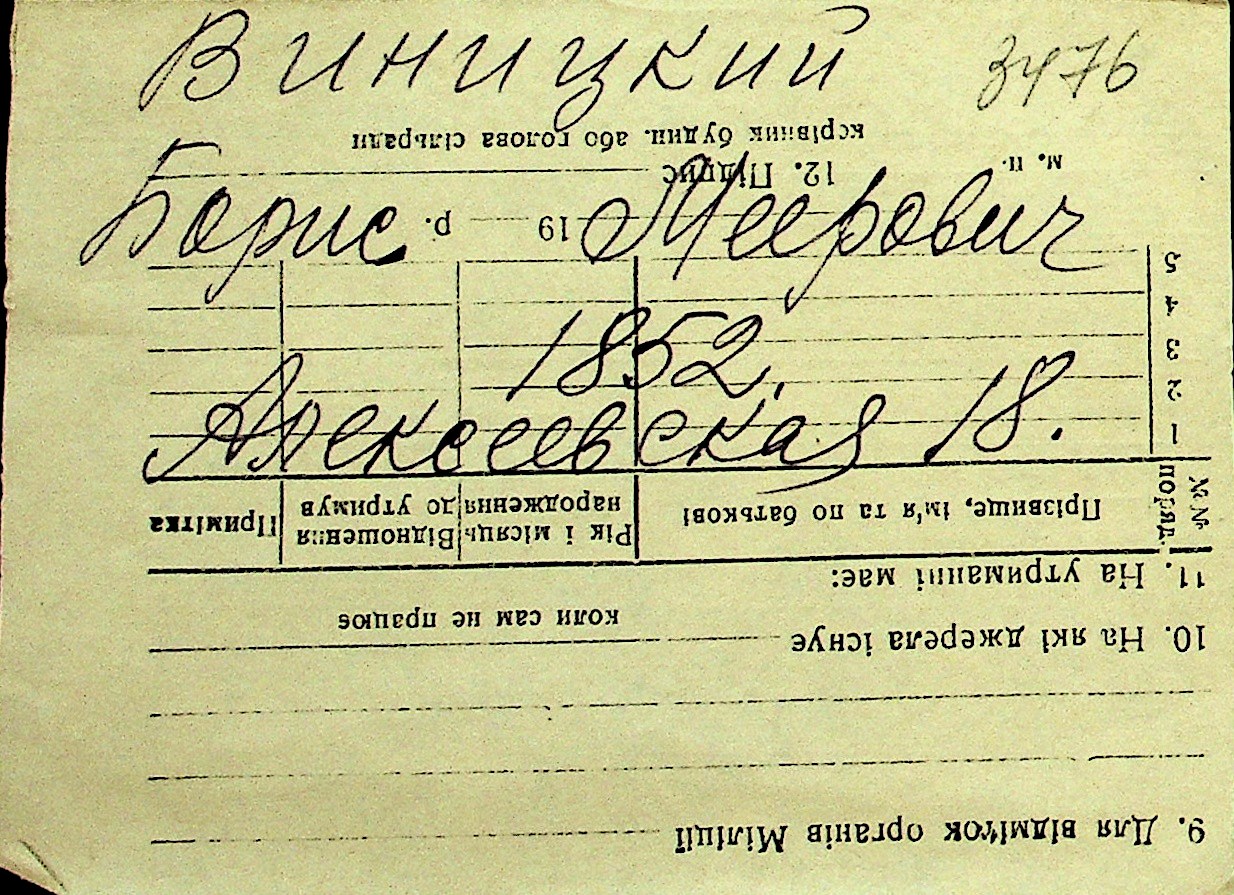 Виницкий 3476
Борис Меерович
1852.
Алексеевская 18.
9. Для відміток органів Міліції
10. На які джерела існує
коли сам не працює
11. На утриманні має:
№№ поряд. Прізвище, ім'я та по батькові Рік і місяць народження Відношення до утримув Примітка
1
2
3
4
5
19 р.
м. п. 12. Підпис
керівник будин. або голова сільради